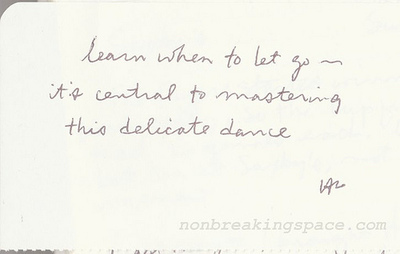 learn when to let go ~
it's central to mastering
this delicate dance
nonbreakingspace.com